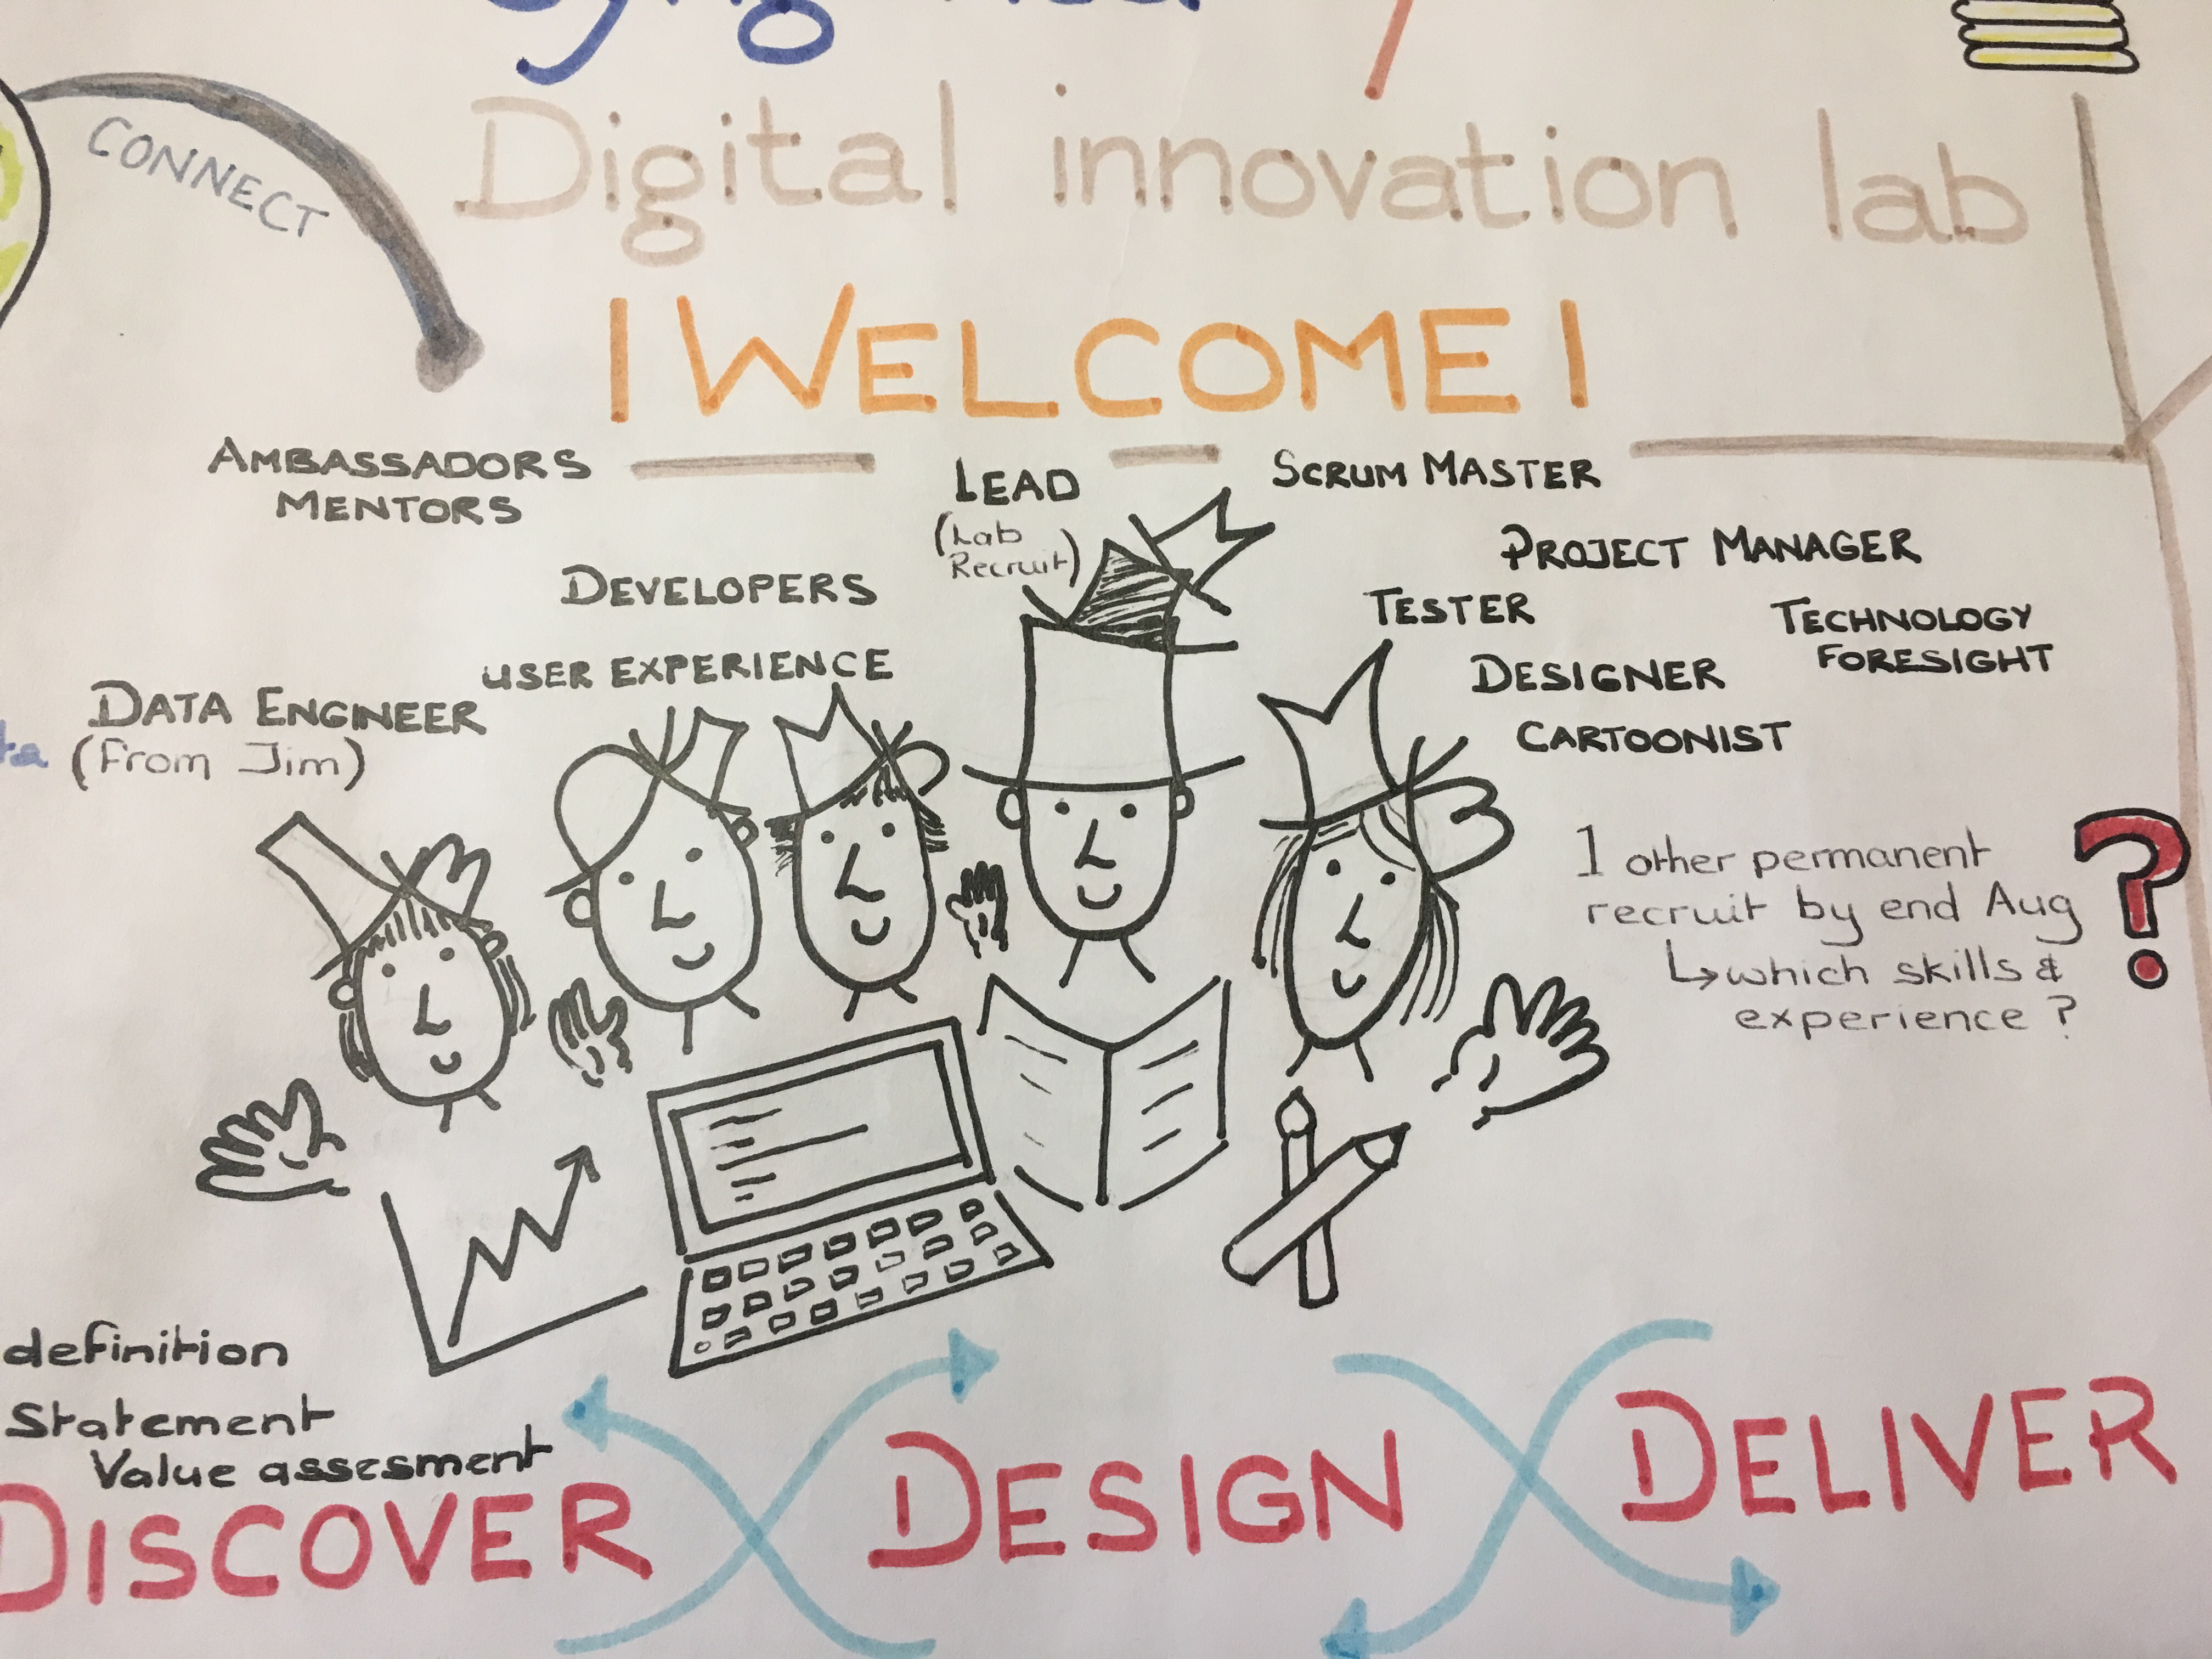 Digital innovation lab
CONNECT
! WELCOME !
AMBASSADORS
MENTORS
LEAD
(Lab
Recruit)
SCRUM MASTER
PROJECT MANAGER
DEVELOPERS
TESTER
TECHNOLOGY
FORESIGHT
USER EXPERIENCE
DESIGNER
DATA ENGINEER
(From Jim)
CARTOONIST
1 other permanent
recruit by end Aug
↳ which skills &
experience ?
?
definition
Statement
Value assesment
DISCOVER
DESIGN
DELIVER